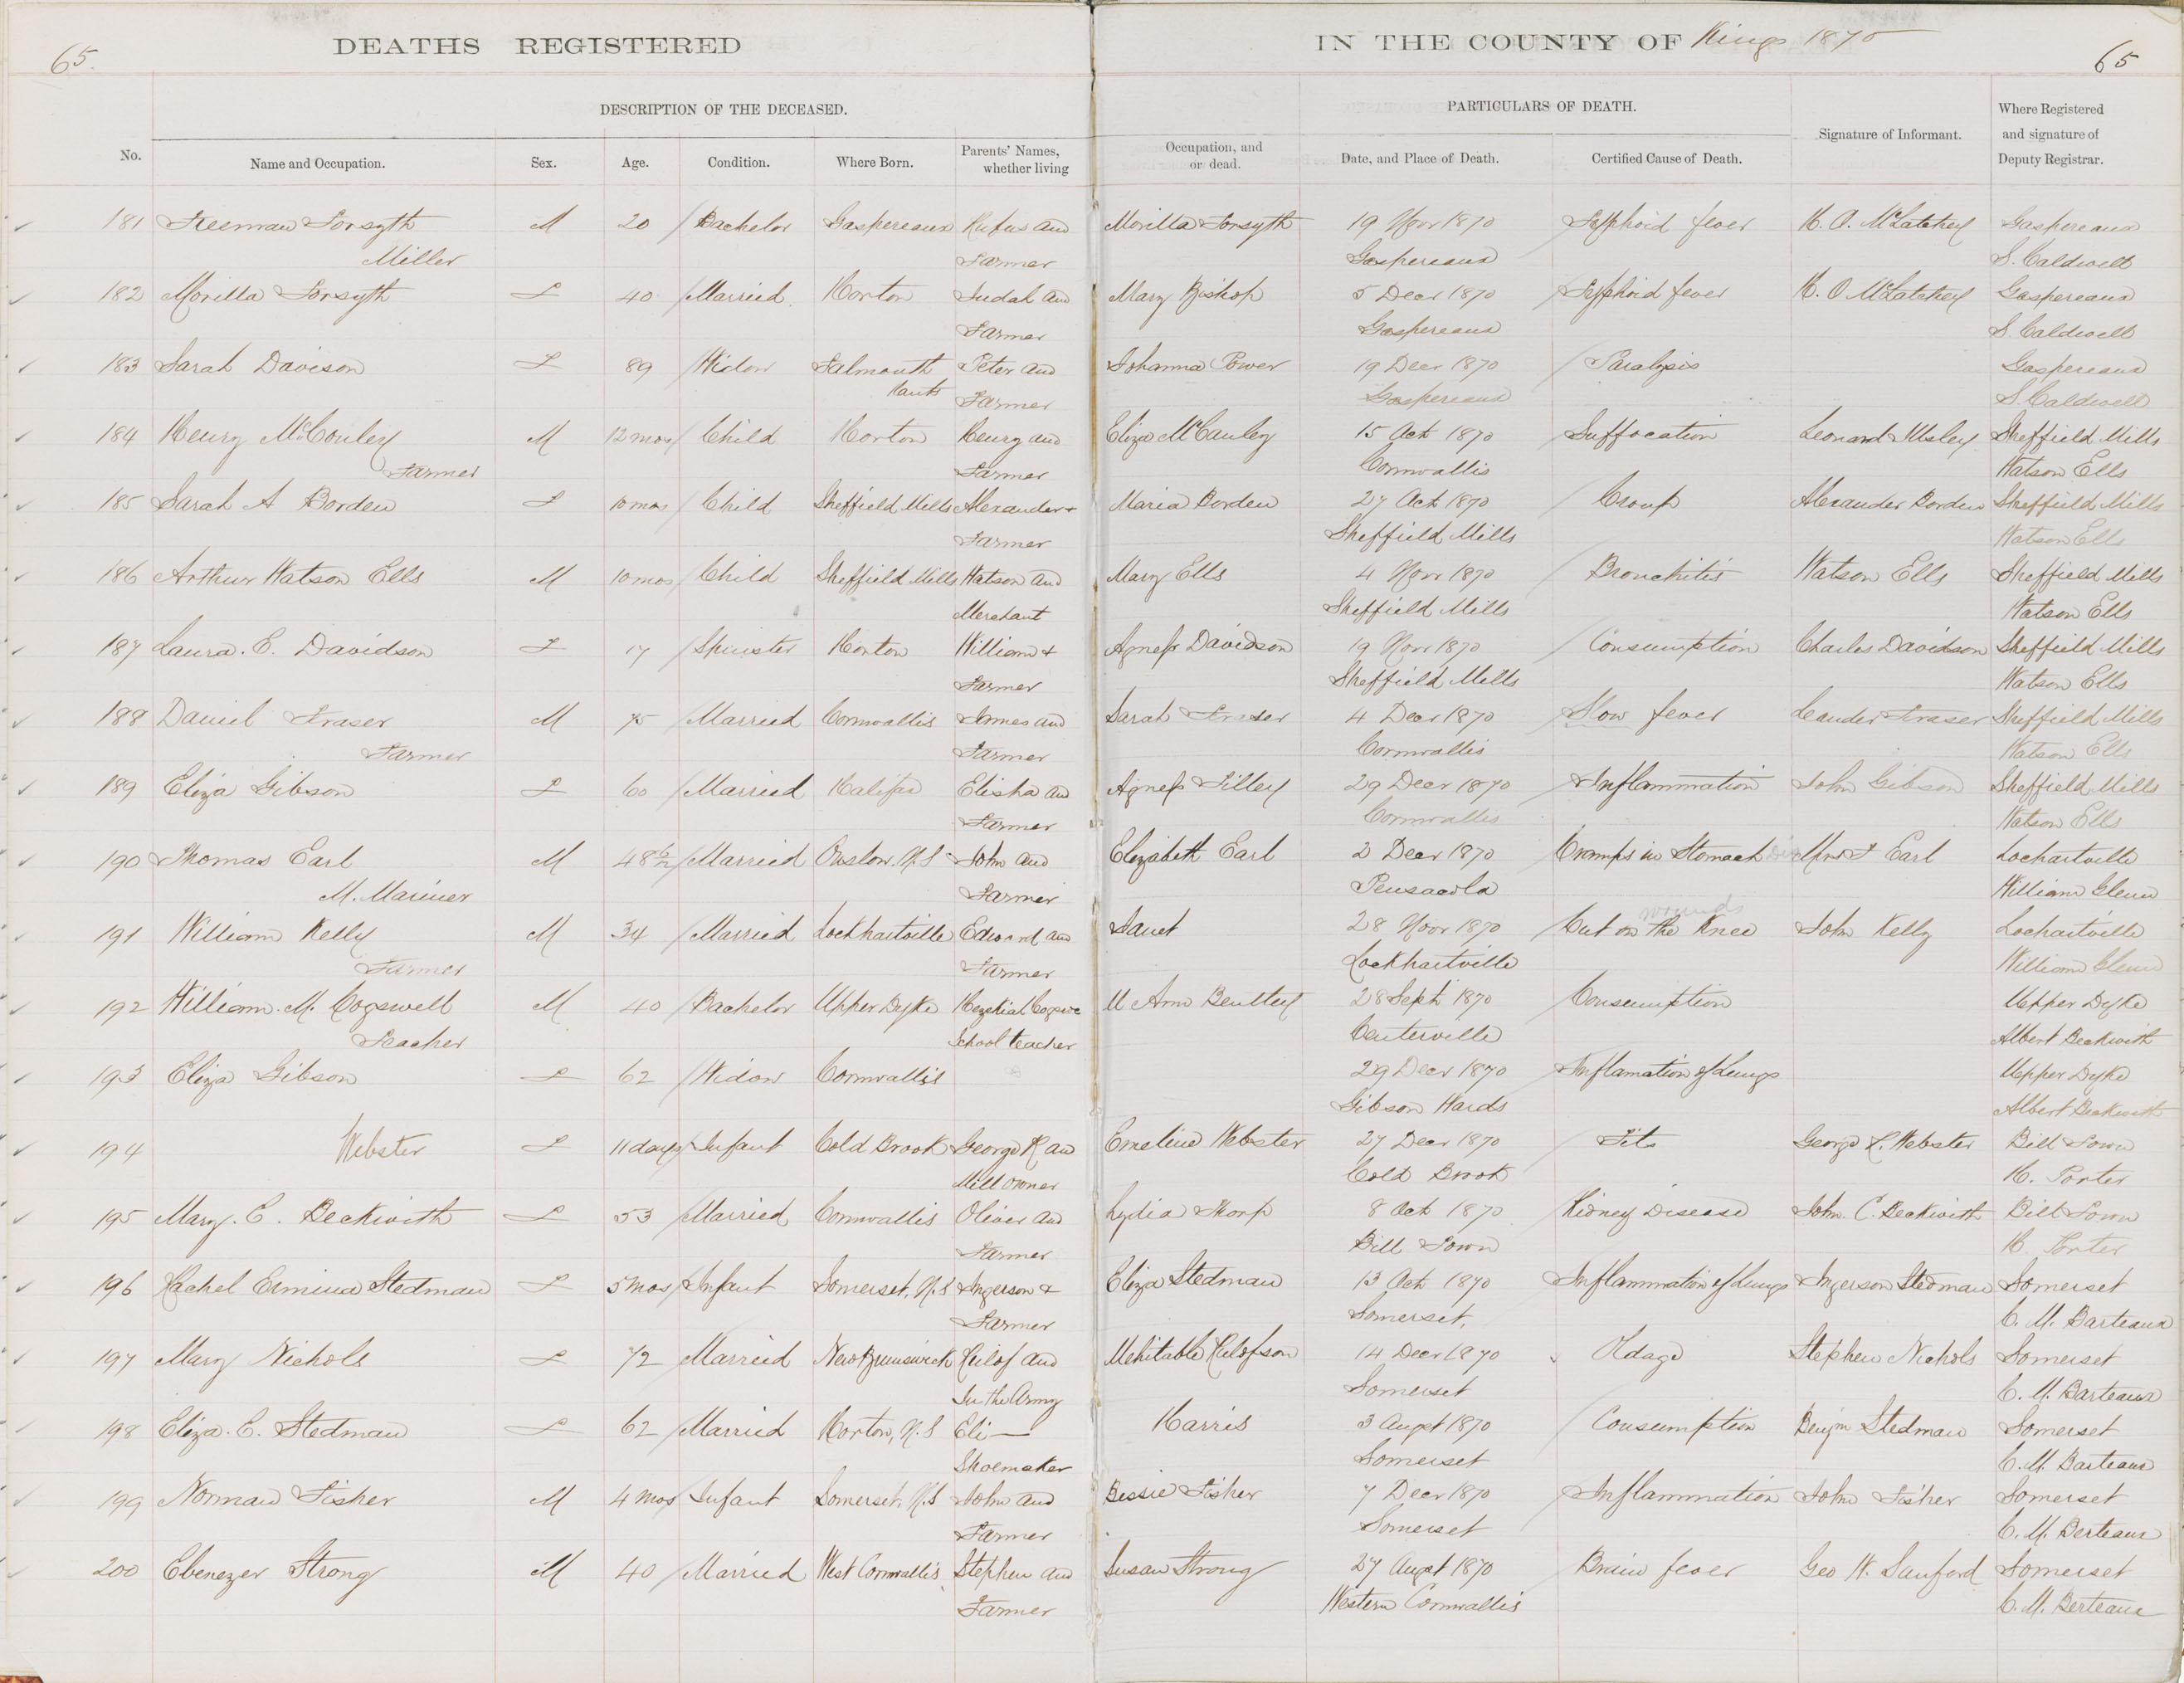 65.
DEATHS REGISTERED
IN THE COUNTY OF Kings 1870
65
DESCRIPTION OF THE DECEASED.
PARTICULARS OF DEATH.
No.
Name and Occupation.
Sex.
Age.
Condition.
Where Born.
Parents' Names, whether living
Occupation, and or dead.
Date, and Place of Death.
Certified Cause of Death.
Signature of Informant.
Where Registered and signature of Deputy Registrar.
181 Freeman Forsyth M 20 Bachelor Gaspereaux Rufus and Morilla Forsyth 19 Novr 1870 Typhoid fever H. O. McLatchey Gaspereaux
Miller Farmer Gaspereaux S. Caldwell
182 Morilla Forsyth F 40 Married Horton Judah and Mary Bishop 5 Decr 1870 Typhoid fever H. O McLatchey Gaspereaux
Farmer Gaspereaux S. Caldwell
183 Sarah Davison F 89 Widow Falmouth Peter and Johanna Power 19 Decr 1870 Paralysis Gaspereaux
Hants Farmer Gaspereaux S. Caldwell
184 Henry McCouley M 12 mos Child Horton Henry and Eliza McCauley 15 Oct 1870 Suffocation Leonard Ilsley Sheffield Mills
Farmer Farmer Cornwallis Watson Ells
185 Sarah A Borden F 10 mos Child Sheffield Mills Alexander + Maria Borden 27 Oct 1870 Croup Alexander Borden Sheffield Mills
Farmer Sheffield Mills Watson Ells
186 Arthur Watson Ells M 10 mos Child Sheffield Mills Watson and Mary Ells 4 Novr 1870 Bronchitis Watson Ells Sheffield Mills
Merchant Sheffield Mills Watson Ells
187 Laura. E. Davidson F 17 Spinster Horton William + Agness Davidson 19 Novr 1870 Consumption Charles Davidson Sheffield Mills
Farmer Sheffield Mills Watson Ells
188 Daniel Fraser M 75 Married Cornwallis James and Sarah Fraser 4 Decr 1870 Slow fever Leander Fraser Sheffield Mills
Farmer Farmer Cornwallis Watson Ells
189 Eliza Gibson F 60 Married Halifax Elisha an Agness Tilley 29 Decr 1870 Inflammation John Gibson Sheffield Mills
Farmer Cornwallis Watson Ells
190 Thomas Earl M 48 6/12 Married Onslow. N.S John and Elizabeth Earl 2 Decr 1870 Cramps in Stomach Mrs T Earl Lochartville
M. Mariner Farmer Pensacola William Glenn
191 William Kelly M 34 Married Lockhartville Edward and Janet 28 Novr 1870 Cut on the Knee wounds John Kelly Lochartville
Farmer Farmer Lockhartville William Glenn
192 William. M. Cogswell M 40 Bachelor Upper Dyke Hezekiah Cogswe M Ann Bentley 28 Sept 1870 Consumption Upper Dyke
Teacher School teacher Centerville Albert Beckwith
193 Eliza Gibson F 62 Widow Cornwallis 29 Decr 1870 Inflamation of Lungs Upper Dyke
Gibson Wards Albert Beckwith
194 Webster F 11 days Infant Cold Brook George R an Emeline Webster 27 Decr 1870 Fits George R. Webster Bill Town
Mill owner Cold Brook H. Porter
195 Mary. E. Beckwith F 53 Married Cornwallis Oliver and Lydia Thorp 8 Oct 1870 Kidney Disease John. C. Beckwith Bill Town
Farmer Bill Town H. Porter
196 Rachel Ermina Stedman F 5 mos Infant Somerset, N.S Ingerson + Eliza Stedman 13 Oct 1870 Inflammation of Lungs Ingerson Stedman Somerset
Farmer Somerset. C. M. Barteaux
197 Mary Nichols F 72 Married New Brunswick and Mehitable 14 Decr 1870 Old age Stephen Nichols Somerset
In the Army Somerset C. M. Barteaux
198 Eliza. C. Stedman F 62 Married Horton, N.S Eli — Harris 3 Augst 1870 Consumption Benjn Stedman Somerset
Shoemaker Somerset C. M. Barteaux
199 Norman Fisher M 4 mos Infant Somerset, N.S John and Bessie Fisher 7 Decr 1870 Inflammation John Fisher Somerset
Farmer Somerset C. M. Berteaux
200 Ebenezer Strong M 40 Married West Cornwallis Stephen and Susan Strong 27 Augst 1870 Brain fever Geo W. Sanford Somerset
Farmer Western Cornwallis C. M. Berteaux